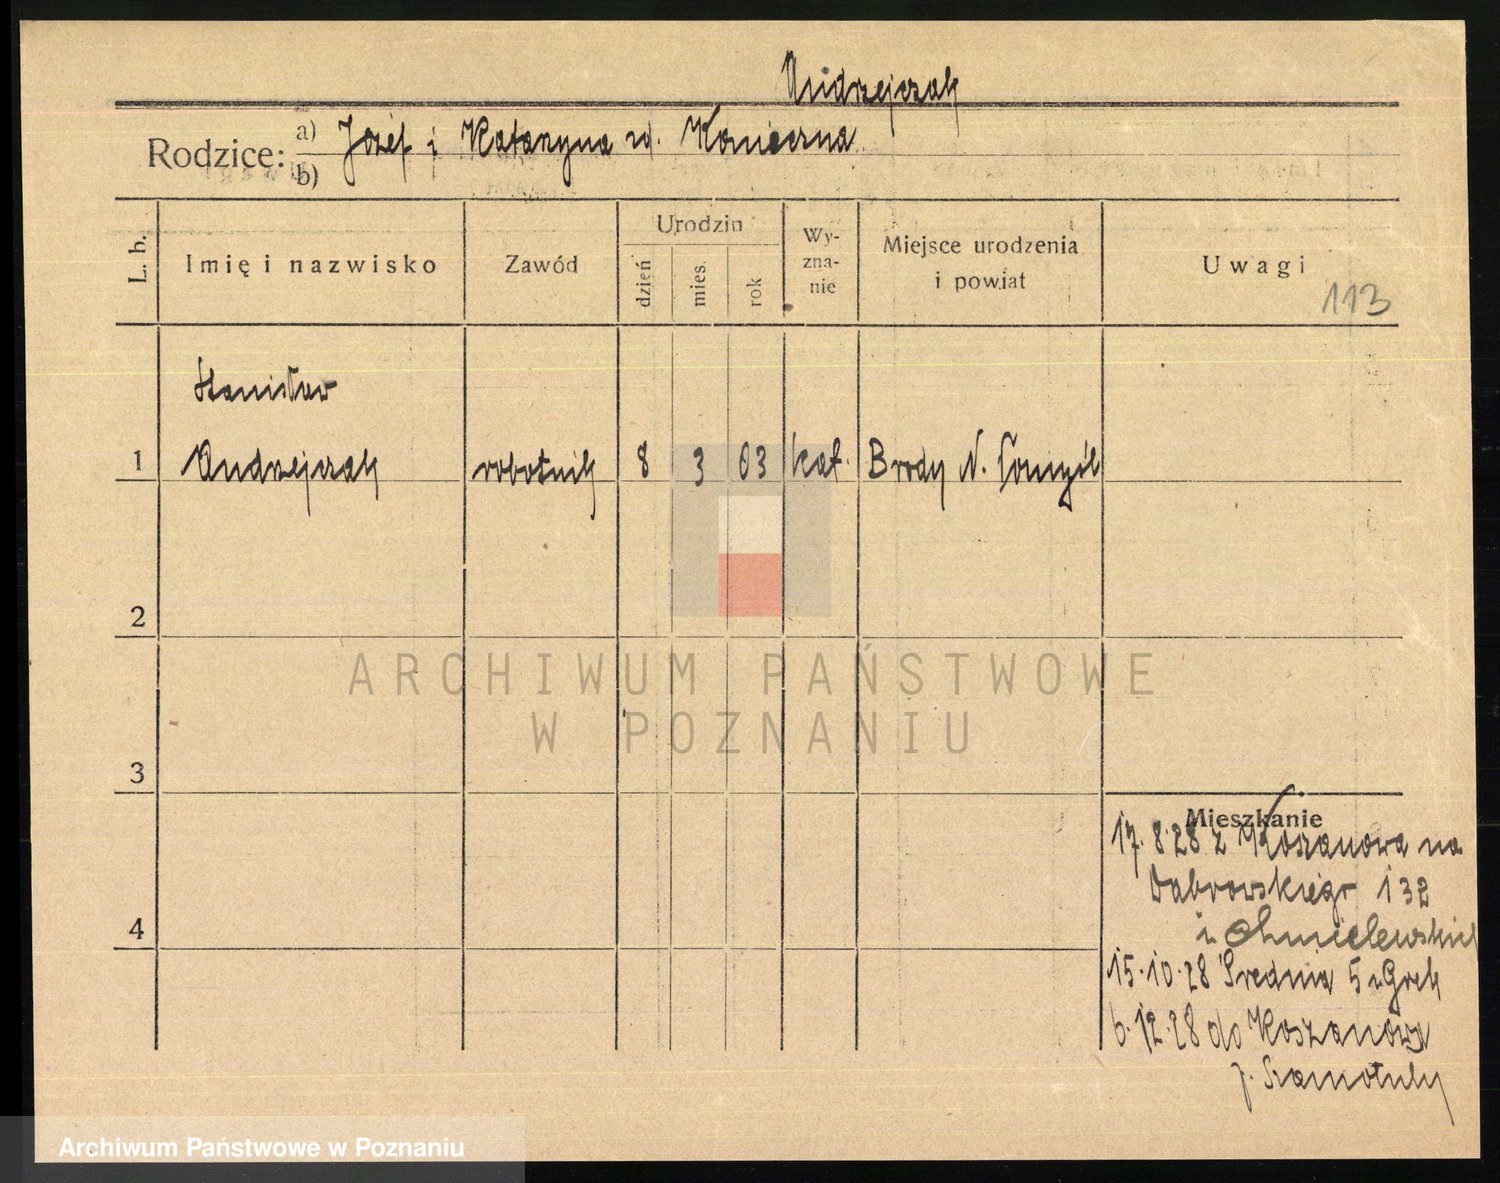 Andrzejczak
Rodzice: a) Józef i Katarzyna rd. Konieczna
b)
L. b. Imię i nazwisko Zawód Urodzin dzień mies. rok Wy-zna-nie Miejsce urodzenia i powiat Uwagi
113
Stanisław
1 Andrzejczak robotnik 8 3 63 kat. Brody N. Tomyśl
2
ARCHIWUM PAŃSTWOWE
W POZNANIU
3
Mieszkanie
17. 8.28 z Koszanowa na
Dabrowskiego 132
4
u Chmielewskich
15.10.28 Średnia 5
6.12.28 do Koszanowa
p. Szamotuły
Archiwum Państwowe w Poznaniu